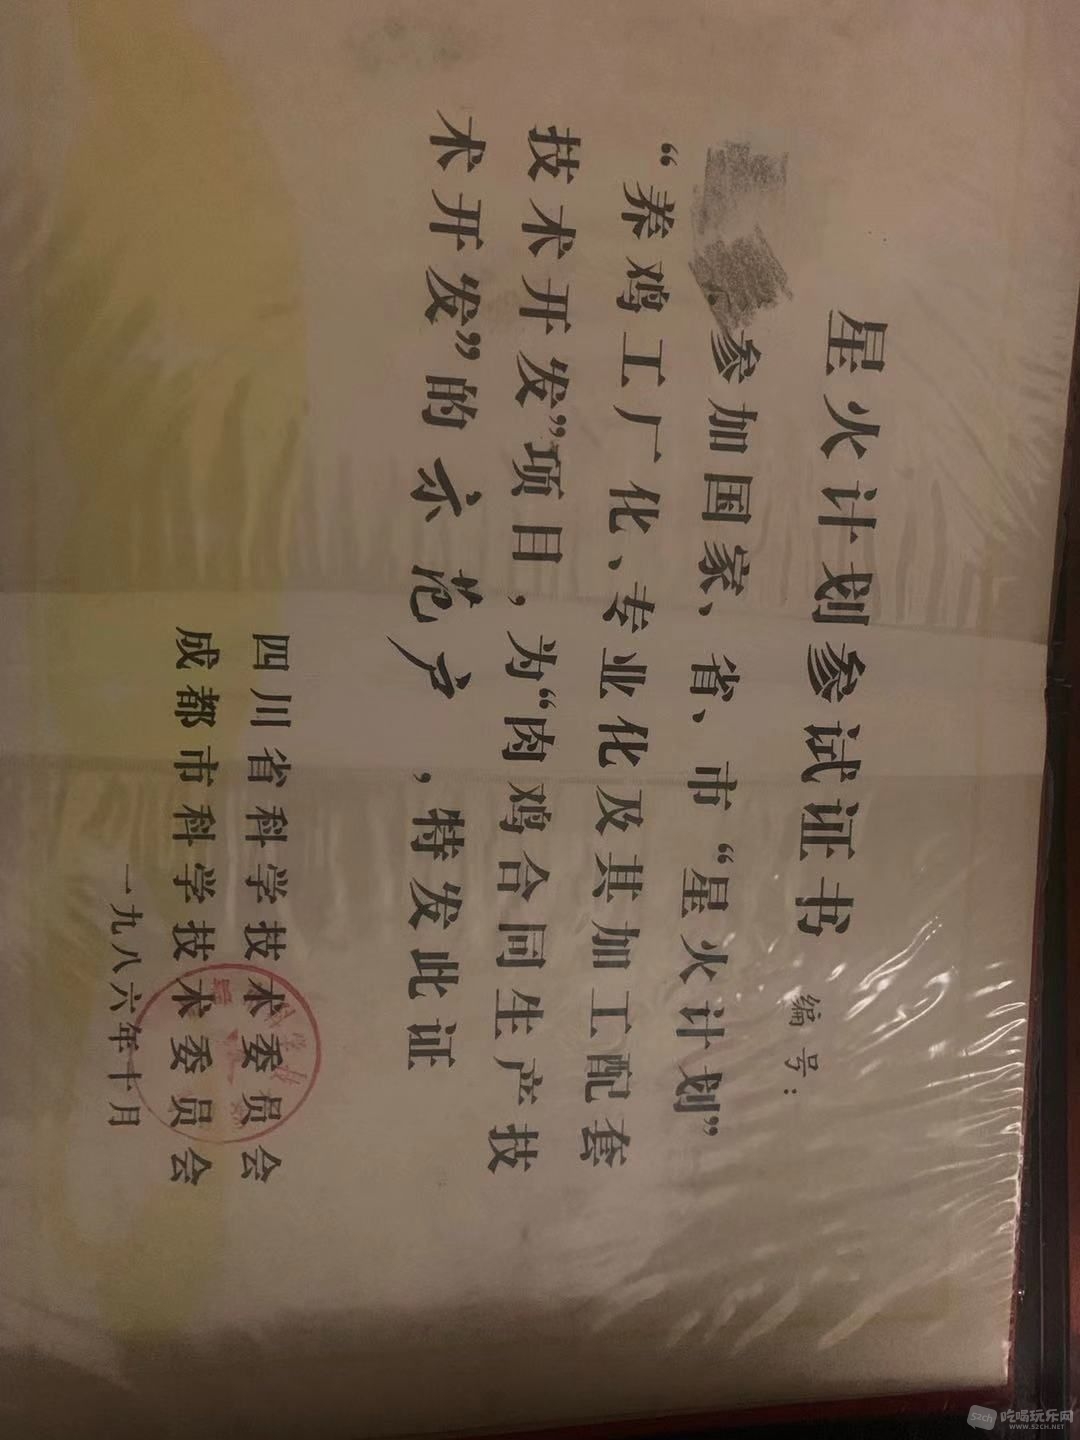 星火计划参试证书
编号：
参加国家、省、市“星火计划”
“养鸡工厂化、专业化及其加工配套
技术开发”项目，为“肉鸡合同生产技
术开发”的示范户，特发此证
四川省科学技术委员会
成都市科学技术委员会
一九八六年十月
52ch 吃喝玩乐网
WWW.52CH.NET